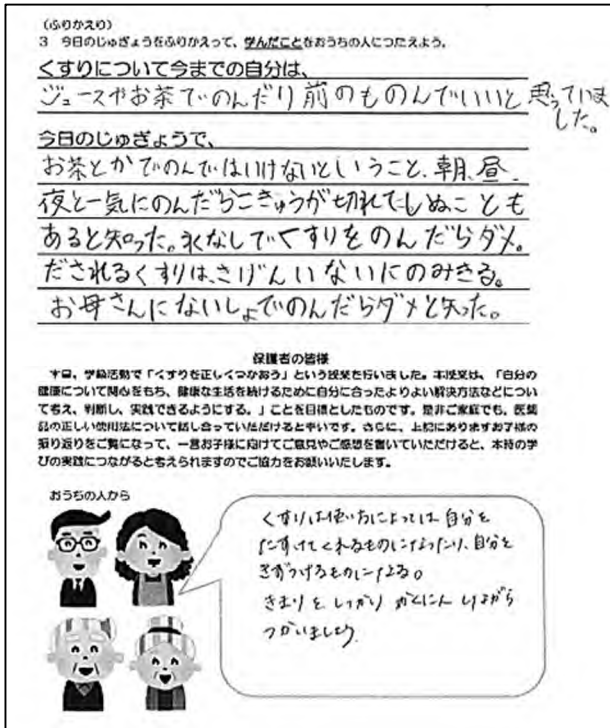 (ふりかえり)
3 今日のじゅぎょうをふりかえって、学んだことをおうちの人につたえよう。
くすりについて今までの自分は、
ジュースやお茶でのんだり前のものんでいいと思っていま
した。
今日のじゅぎょうで、
お茶とかでのんではいけないということ、朝、昼、
夜と一気にのんだらこきゅうが切れてしぬことも
あると知った。水なしでくすりをのんだらダメ。
だされるくすりは、きげんいないにのみきる。
お母さんにないしょでのんだらダメと知った。
保護者の皆様
本日、学級活動で「くすりを正しくつかおう」という授業を行いました。本授業は、「自分の
健康について関心をもち、健康な生活を続けるために自分に合ったよりよい解決方法などについ
て考え、判断し、実践できるようにする。」ことを目標としたものです。是非ご家庭でも、医薬
品の正しい使用法について話し合っていただけると幸いです。さらに、上記にありますお子様の
振り返りをご覧になって、一言お子様に向けてご意見やご感想を書いていただけると、本時の学
びの実践につながると考えられますのでご協力をお願いいたします。
おうちの人から
くすりは使い方によっては自分を
たすけてくれるものになったり、自分を
きずつけるものになる。
きまりをしっかりかくにんしながら
つかいましょう